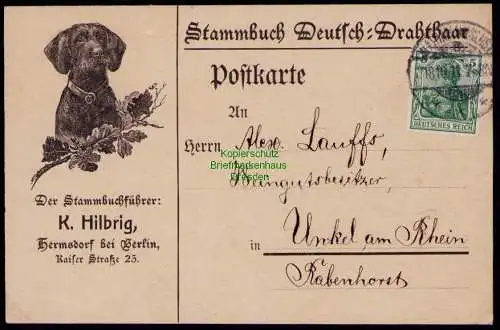 Stammbuch Deutsch-Drahthaar
Postkarte
An
Herrn Alex. Lauffs,
Weingutsbesitzer,
in Unkel am Rhein
Rabenhorst
Der Stammbuchführer:
K. Hilbrig,
Hermsdorf bei Berlin,
Kaiser Straße 25.
DEUTSCHES REICH
Kopierschutz
Briefmarkenhaus
Dresden